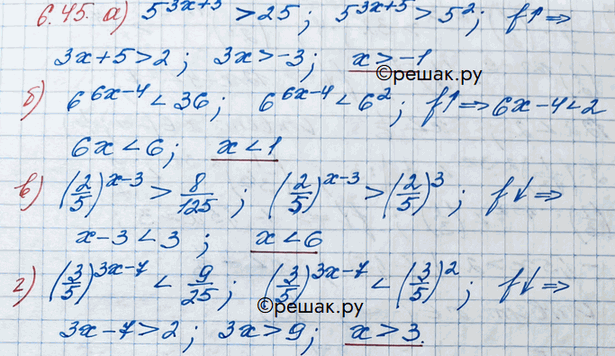 6.45. а) 5^(3x+5) > 25; 5^(3x+5) > 5^2; f↑ ⇒
3x+5>2; 3x>-3; x>-1
©решак.ру
б) 6^(6x-4) < 36; 6^(6x-4) < 6^2; f↑ ⇒ 6x-4<2
6x<6; x<1
в) (2/5)^(x-3) > 8/125; (2/5)^(x-3) > (2/5)^3; f↓ ⇒
x-3<3; x<6
г) (3/5)^(3x-7) < 9/25; (3/5)^(3x-7) < (3/5)^2; f↓ ⇒
©решак.ру
3x-7>2; 3x>9; x>3.